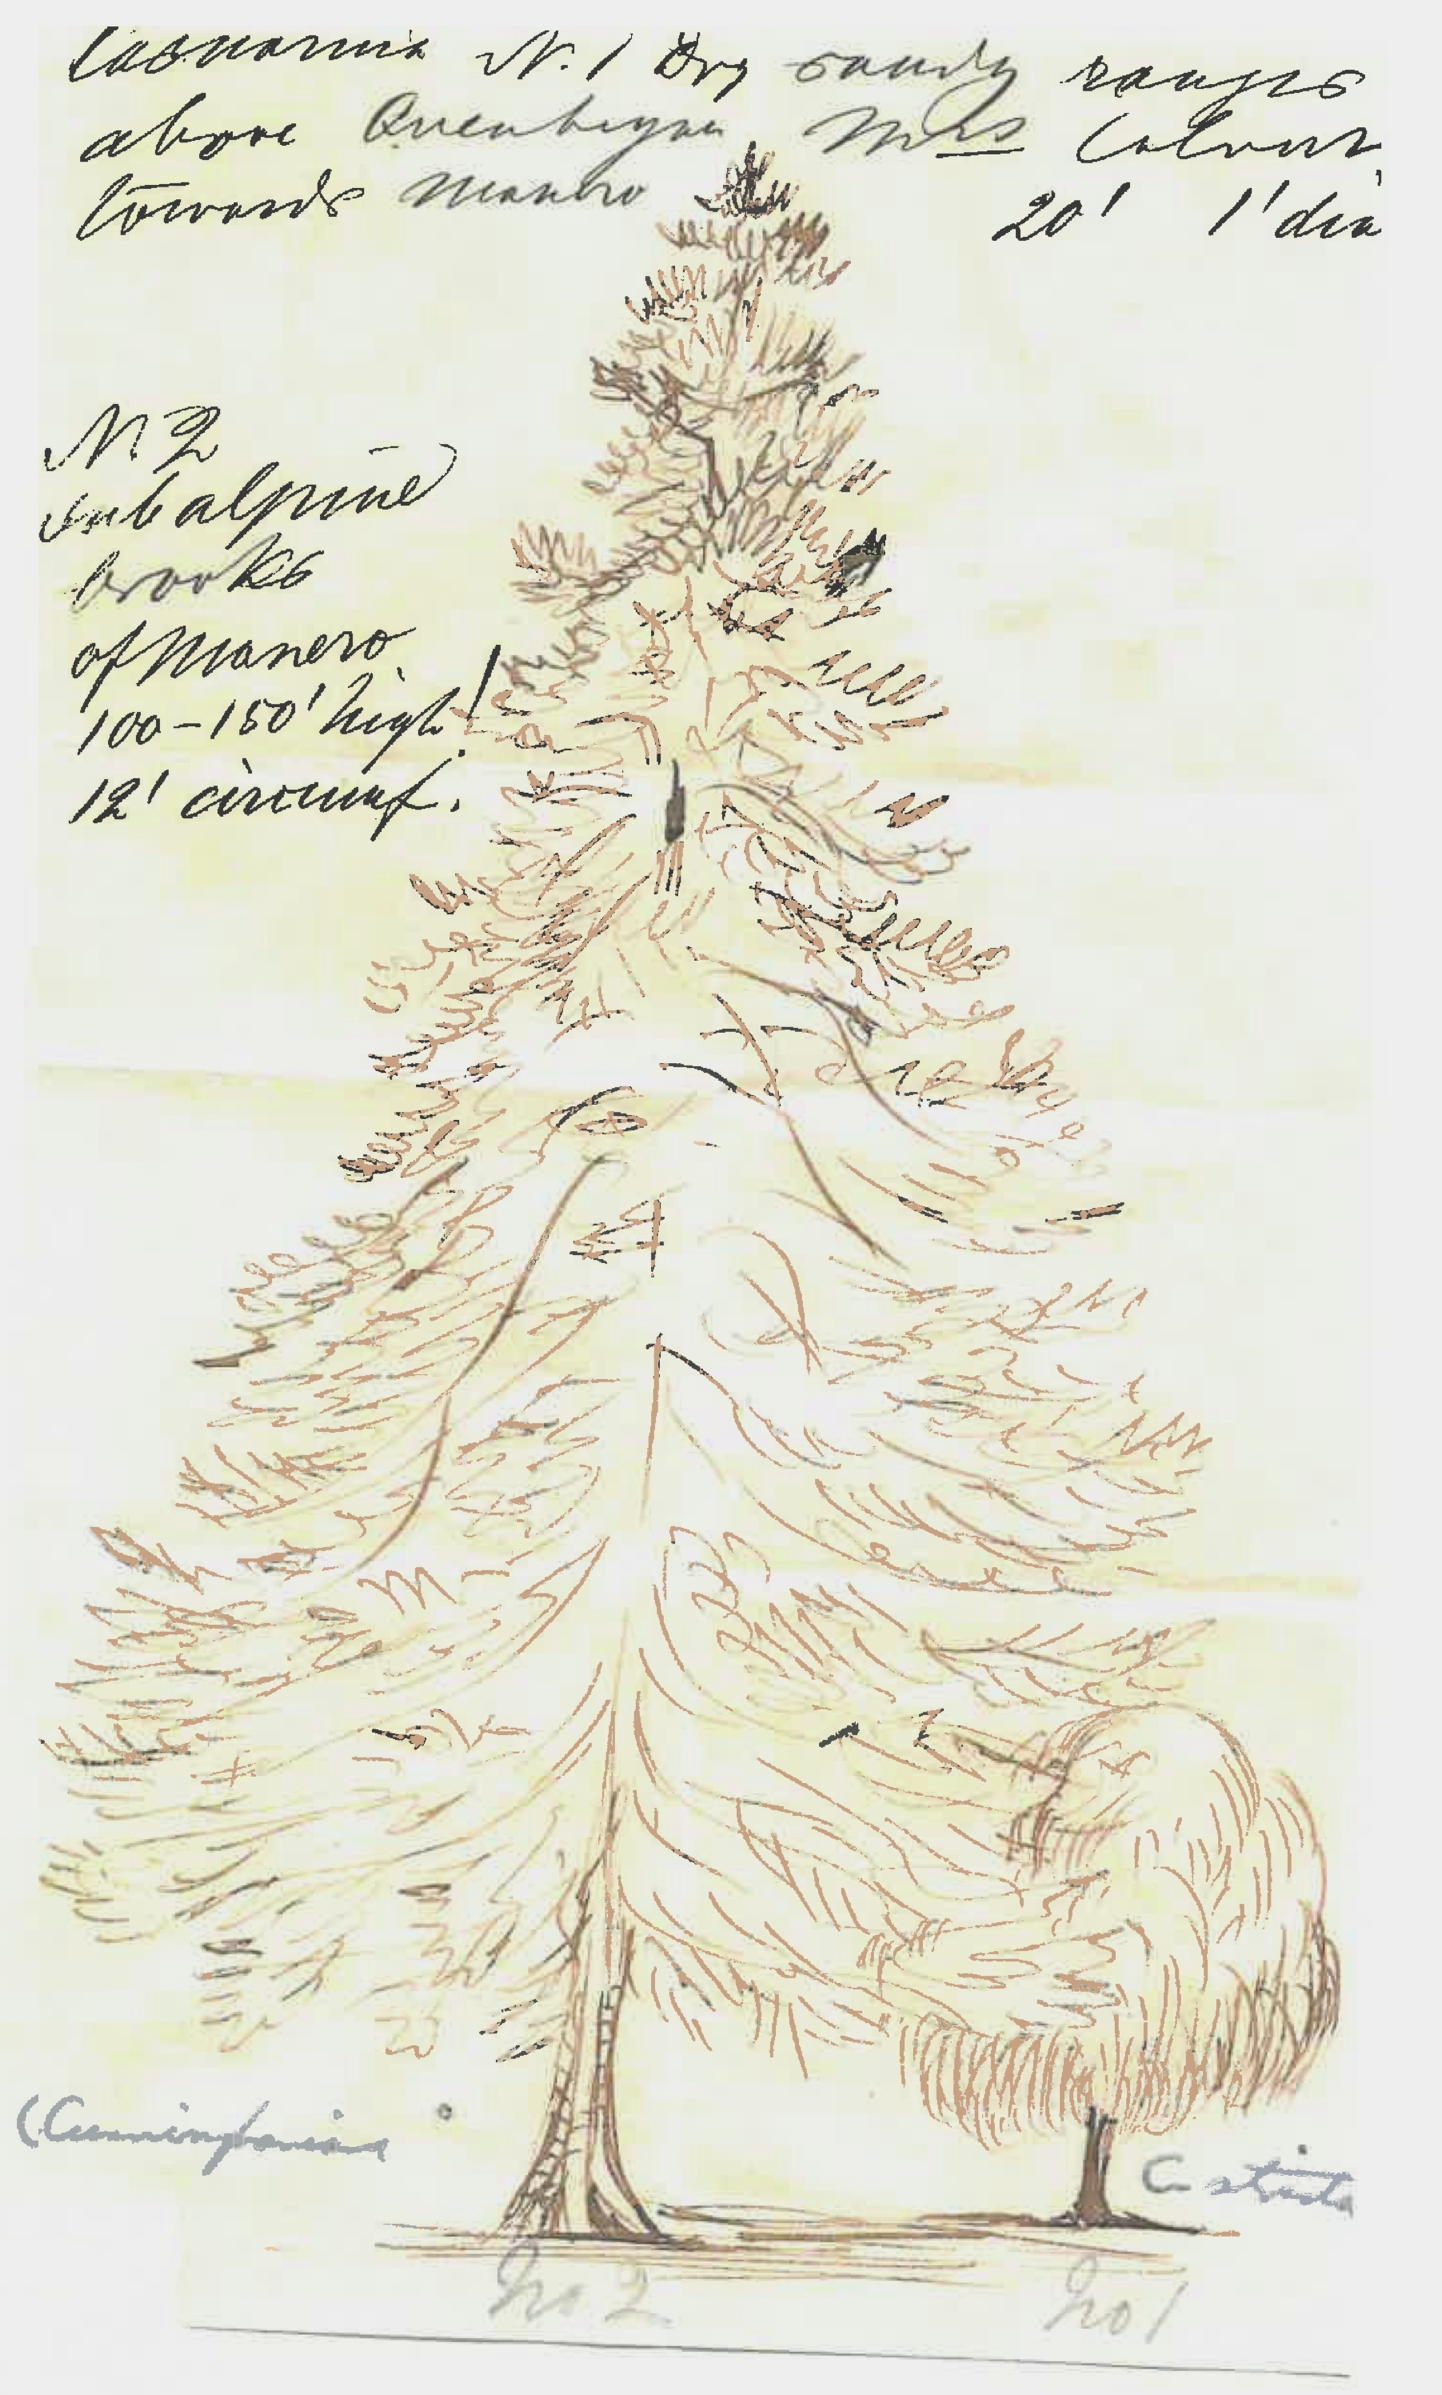 Casuarina N. 1 Dry sandy ranges
above Queanbeyan Mrs
towards Manero 20' 1' dia
N 2
subalpine
brooks
of Manero
100-150' high!
12' circumf.
(Cunninghamiana
C stricta
No 2 No 1